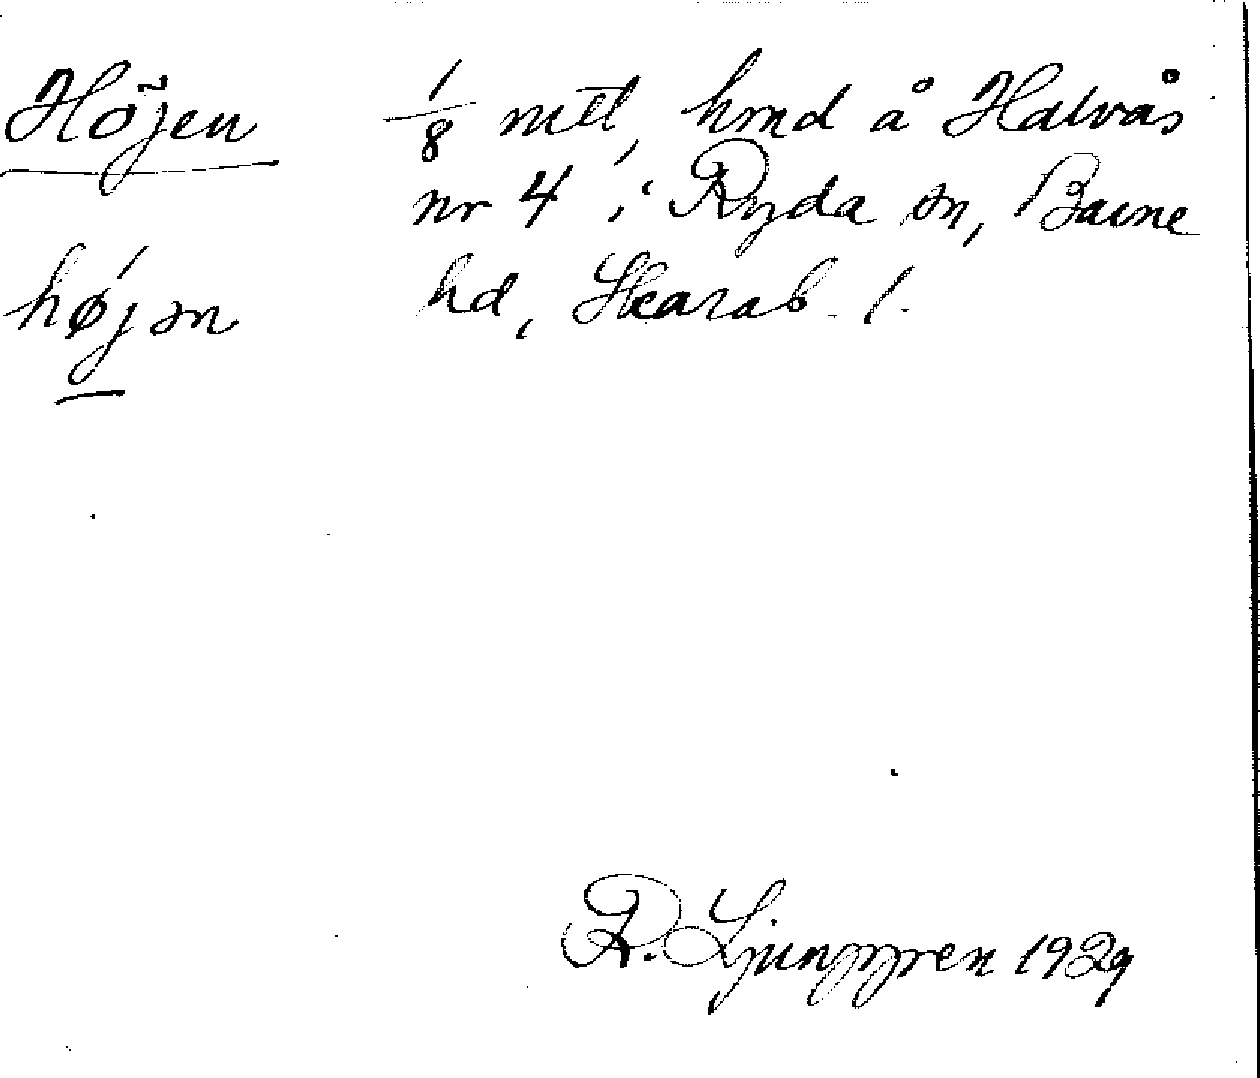 Höjen 1/8 mtl, hmd å Halvås
nr 4 i Ryda sn, Barne
højsn hd, Skarab. l.
R. Ljunggren 1929